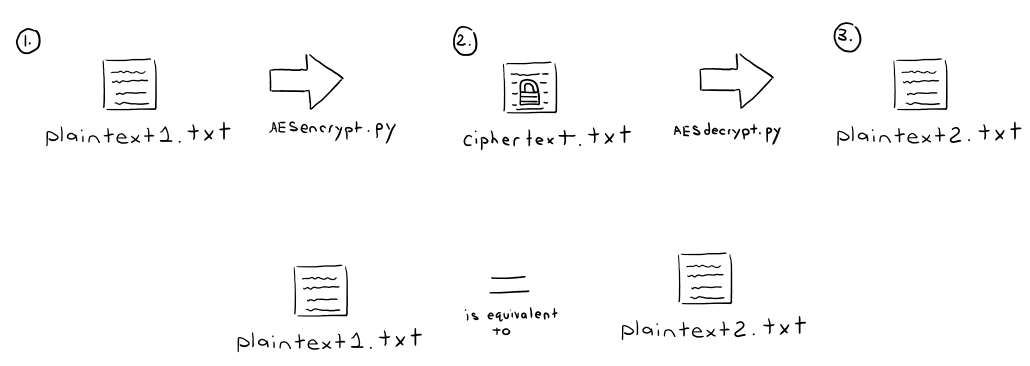 1.
2.
3.
plaintext1.txt
AESencrypt.py
ciphertext.txt
AESdecrypt.py
plaintext2.txt
plaintext1.txt
is equivalent
to
plaintext2.txt